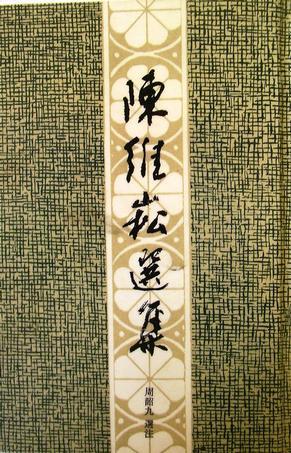 陳維崧選集
周韶九 選注